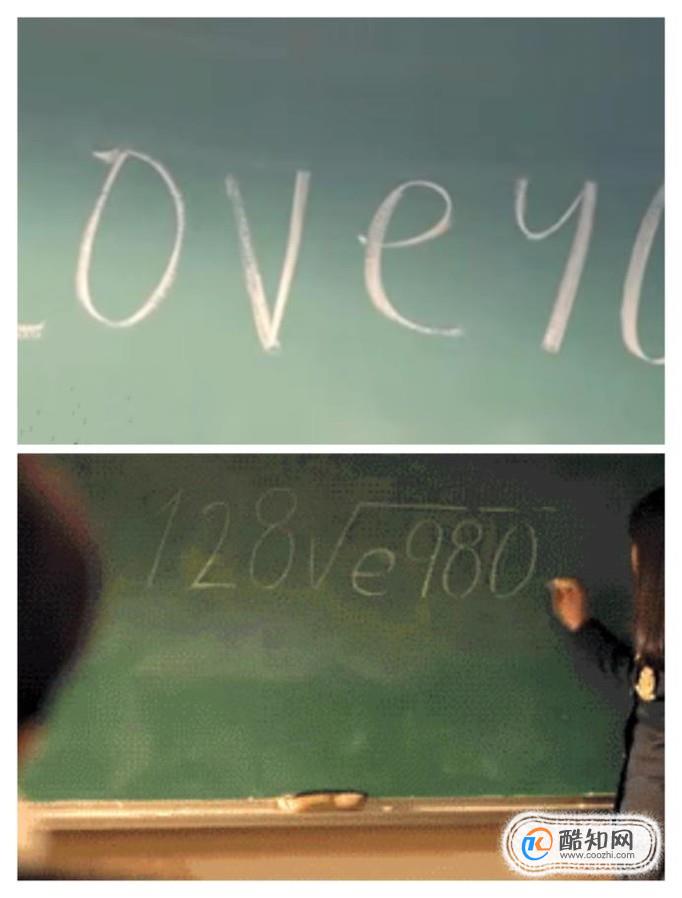 Love yo
128√e980
酷知网
www.coozhi.com